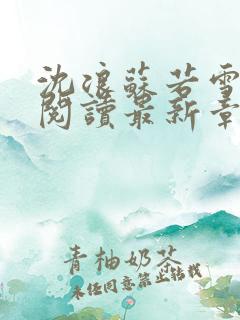 沈浪蘇若雪
閱讀最新章
青柚奶茶
未经同意禁止转载